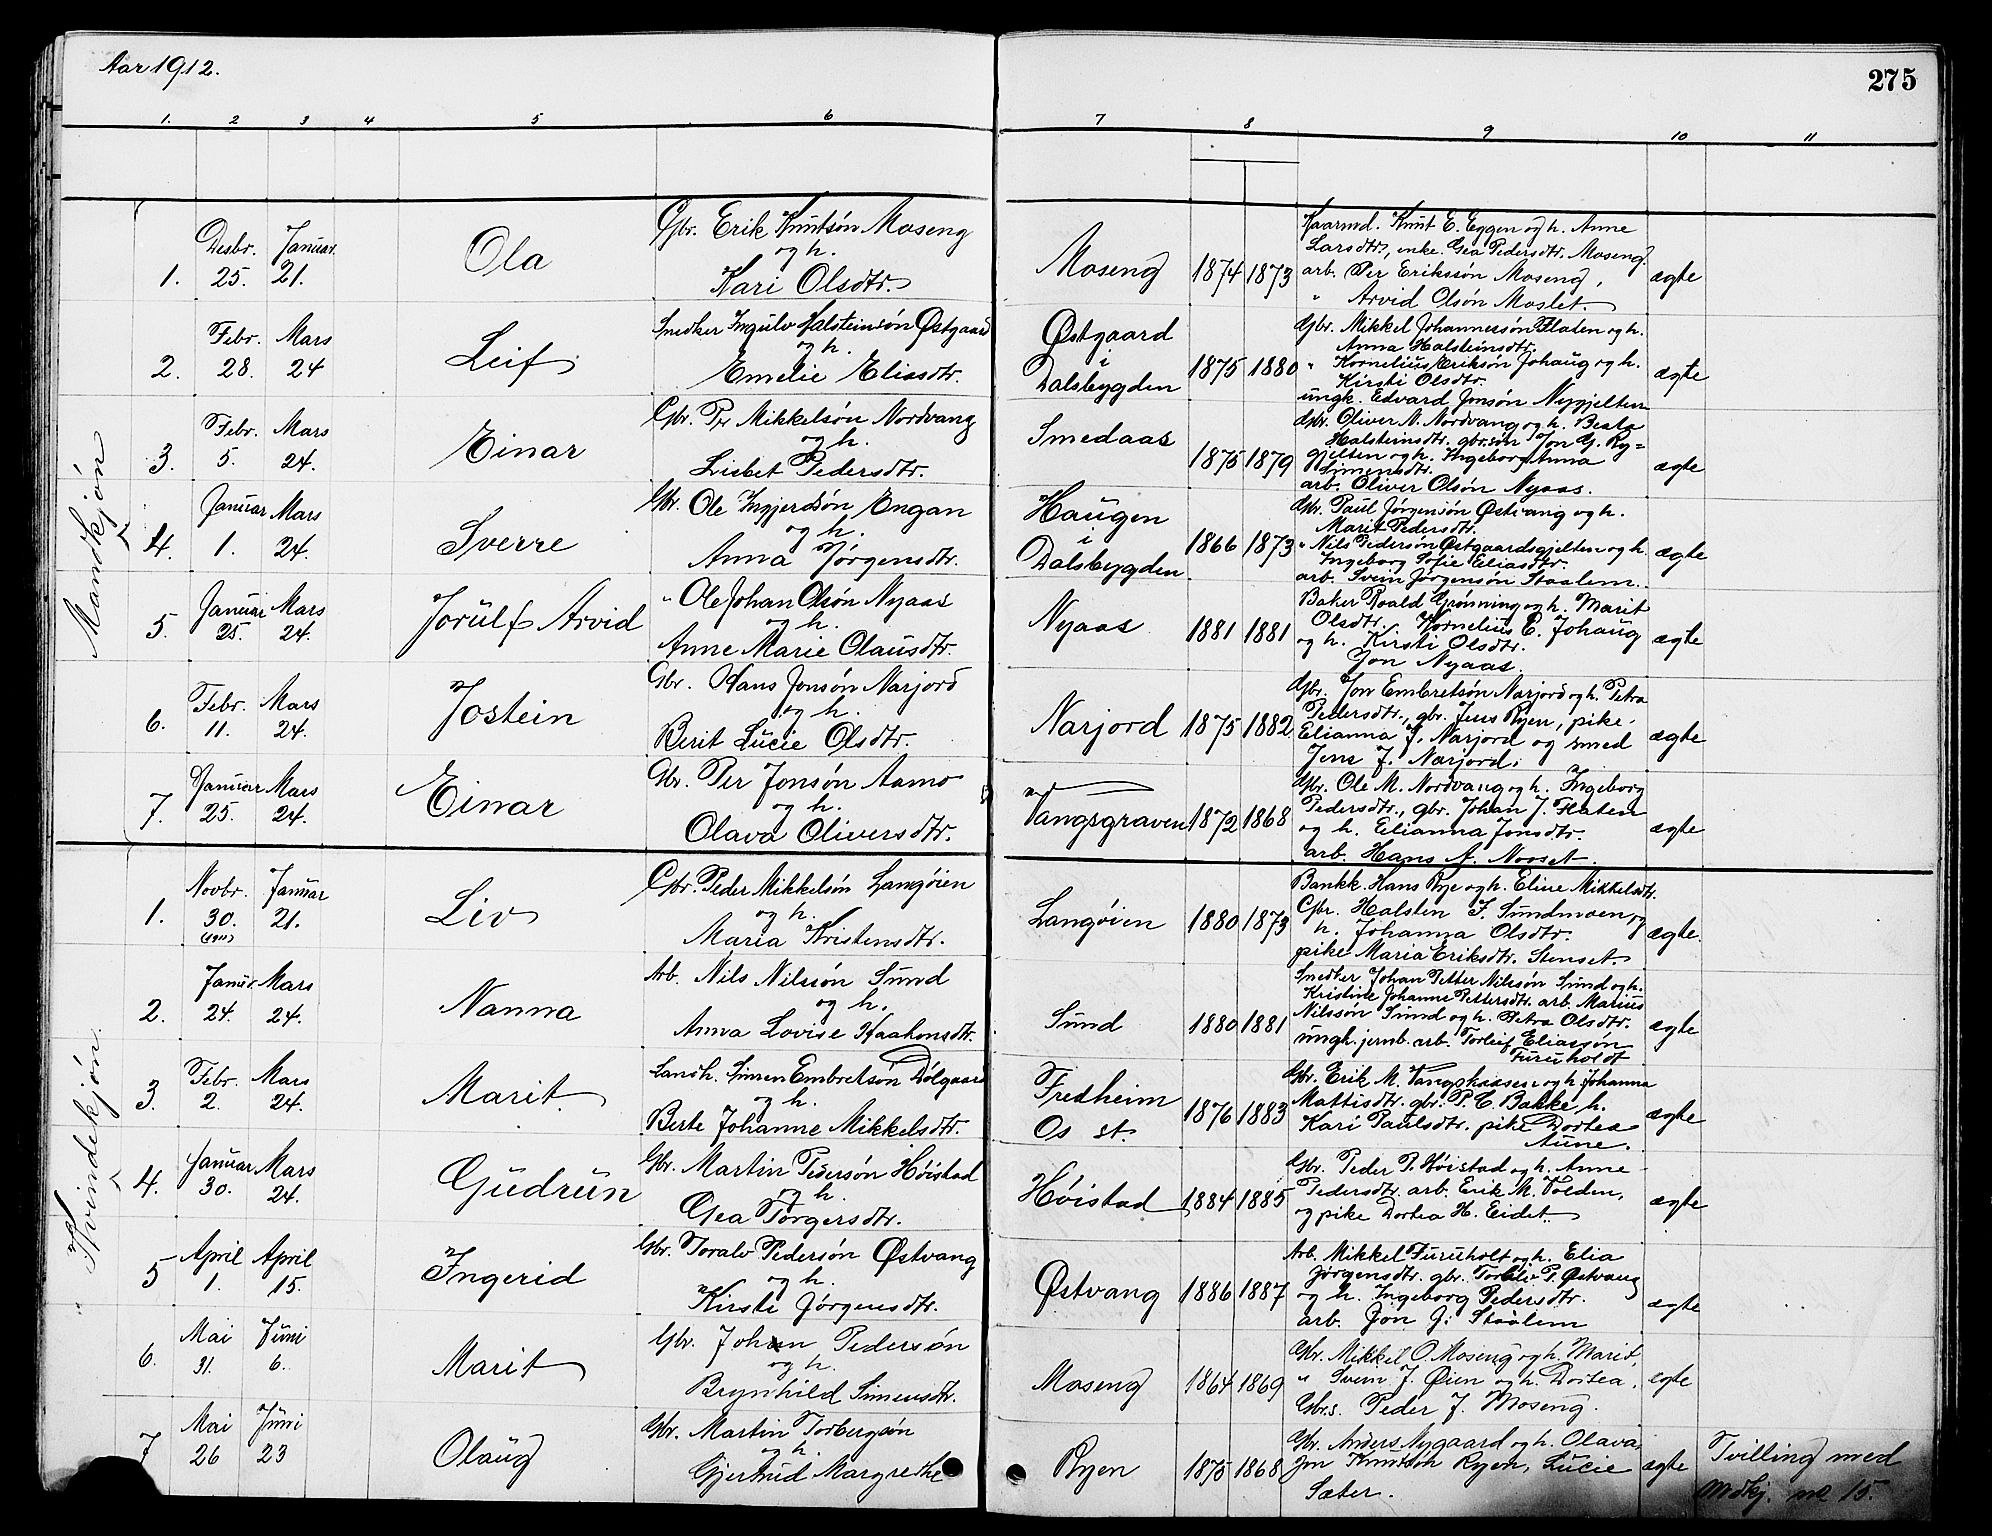 Aar 1912.
275
1. 2 3 4 5 6 7 8 9 10 11
Mandkjøn
1. Desbr. 25. Januar 21. Ola
Gbr. Erik Knutsøn Moseng
og h.
Kari Olsdtr.
Moseng 1874 1873
Kaarmd. Knut E. Eggen og h. Anne
Larsdtr., enke Gea Pedersdtr. Moseng.
arb. Per Erikssøn Moseng,
" Arvid Olsøn Moslet.
ægte
2. Febr. 28. Mars 24 Leif
Snedker Ingulv Halsteinsøn Østgaard
og h.
Emelie Eliasdtr.
Østgaard
i
Dalsbygden
1875 1880
Gbr. Mikkel Johannessøn Flaten og h.
Anna Halsteinsdtr.
" Kornelius Eriksøn Johaug og h.
Kirsti Olsdtr.
ungk. Edvard Jonsøn Nygjelten
ægte
3. Febr. 5. Mars 24. Einar
Gbr. Per Mikkelsøn Nordvang
og h.
Lisbet Pedersdtr.
Smedaas 1875 1879
Gbr. Oliver N. Nordvang og h. Beate
Halsteinsdtr. gbr.søn Jon G. Ry=
gjelten og h. Ingeborg Anna
Simensdtr.
arb. Oliver Olsøn Nyaas.
ægte
4. Januar 1. Mars 24. Sverre
Gbr. Ole Ingjerdsøn Engan
og h.
Anna Jørgensdtr.
Haugen
i
Dalsbygden
1866 1873
Gbr. Paul Jørgensøn Østvang og h.
Marit Pedersdtr.
" Nils Pedersøn Østgaardsgjelten og h.
Ingeborg Sofie Eliasdtr.
arb. Svein Jørgensøn Staalem.
ægte
5. Januar 25. Mars 24. Jorulf Arvid
" Ole Johan Olsøn Nyaas
og h.
Anne Marie Olausdtr.
Nyaas 1881 1881
Baker Roald Grønning og h. Marit
Olsdtr. Kornelius E. Johaug
og h. Kirsti Olsdtr.
Jon Nyaas.
ægte
6. Febr. 11. Mars 24. Jostein
Gbr. Hans Jonsøn Narjord
og h.
Berit Lucie Olsdtr.
Narjord 1875 1882
Gbr. Jon Embretsøn Narjord og h. Petra
Pedersdtr., gbr. Jens Ryen, pike
Elianna J. Narjord og smed
Jens J. Narjord.
ægte
7. Januar 25. Mars 24. Einar
Gbr. Per Jonsøn Aamo
og h.
Olava Oliversdtr.
Vangsgraven 1872 1868
Gbr. Ole M. Nordvang og h. Ingeborg
Pedersdtr., gbr. Johan J. Flaten
og h. Elianna Jonsdtr.
arb. Hans A. Nooset.
ægte
Kvindekjøn.
1. Novbr. 30. (1911) Januar 21. Liv
Gbr. Peder Mikkelsøn Langøien
og h.
Maria Kristensdtr.
Langøien 1880 1873
Bankk. Hans Rye og h. Eline Mikkelsdtr.
Gbr. Halsten J. Sundmoen og
h. Johanna Olsdtr.
pike Maria Eriksdtr. Stenset.
ægte.
2. Januar 24. Mars 24. Nanna
Arb. Nils Nilssøn Sund
og h.
Anna Lovise Haakonsdtr.
Sund 1880 1881
Snedker Johan Petter Nilssøn Sund og h.
Kristine Johanne Pettersdtr. arb. Marius
Nilssøn Sund og h. Petra Olsdtr.
ungk. jernb. arb. Torleif Eliassøn
Furuholdt
ægte
3. Febr. 2. Mars 24. Marit.
Landh. Simen Embretsøn Dølgaard
og h.
Berte Johanne Mikkelsdtr.
Fredheim
Os st.
1876 1883
Gbr. Erik M. Vangskaasen og h. Johanna
Mattisdtr. gbr. P. C. Bakke h.
Kari Paulsdtr. pike Dortea
Aune.
ægte
4. Januar 30. Mars 24. Gudrun
Gbr. Martin Pedersøn Høistad
og h.
Gea Torgersdtr.
Høistad 1884 1885
Gbr. Peder P. Høistad og h. Anne
Pedersdtr. arb. Erik M. Volden,
og pike Dortea H. Eidet.
ægte
5 April 1. April 15. Ingerid
Gbr. Toralv Pedersøn Østvang
og h.
Kirsti Jørgensdtr.
Østvang 1886 1887
Arb. Mikkel Furuholt og h. Elia
Jørgensdtr. gbr. P. Østvang
og h. Ingeborg Pedersdtr.
arb. Jon J. Staalem
ægte
6. Mai 31. Juni 6. Marit
Gbr. Johan Pedersøn
og h.
Brynhild Simensdtr.
Moseng 1864 1869
Gbr. Mikkel O. Moseng og h. Marit,
" Svein J. Øien og h. Dortea,
Gbrs. Peder J. Moseng.
ægte
7 Mai 26 Juni 23 Olaug
Gbr. Martin Torbergsøn
og h.
Gjertrud Margrethe
Ryen 1875 1868
Gbr. Anders Nygaard og h. Olava,
Jon Knutsøn Ryen, Lucie
Sæter.
ægte
Tvilling med
Mdkj. no 15.